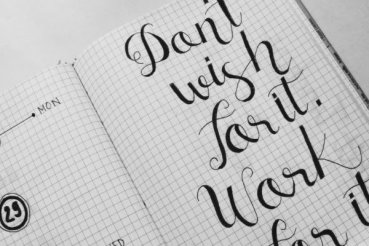 MON
29
Don't
wish
for it.
Work
for it